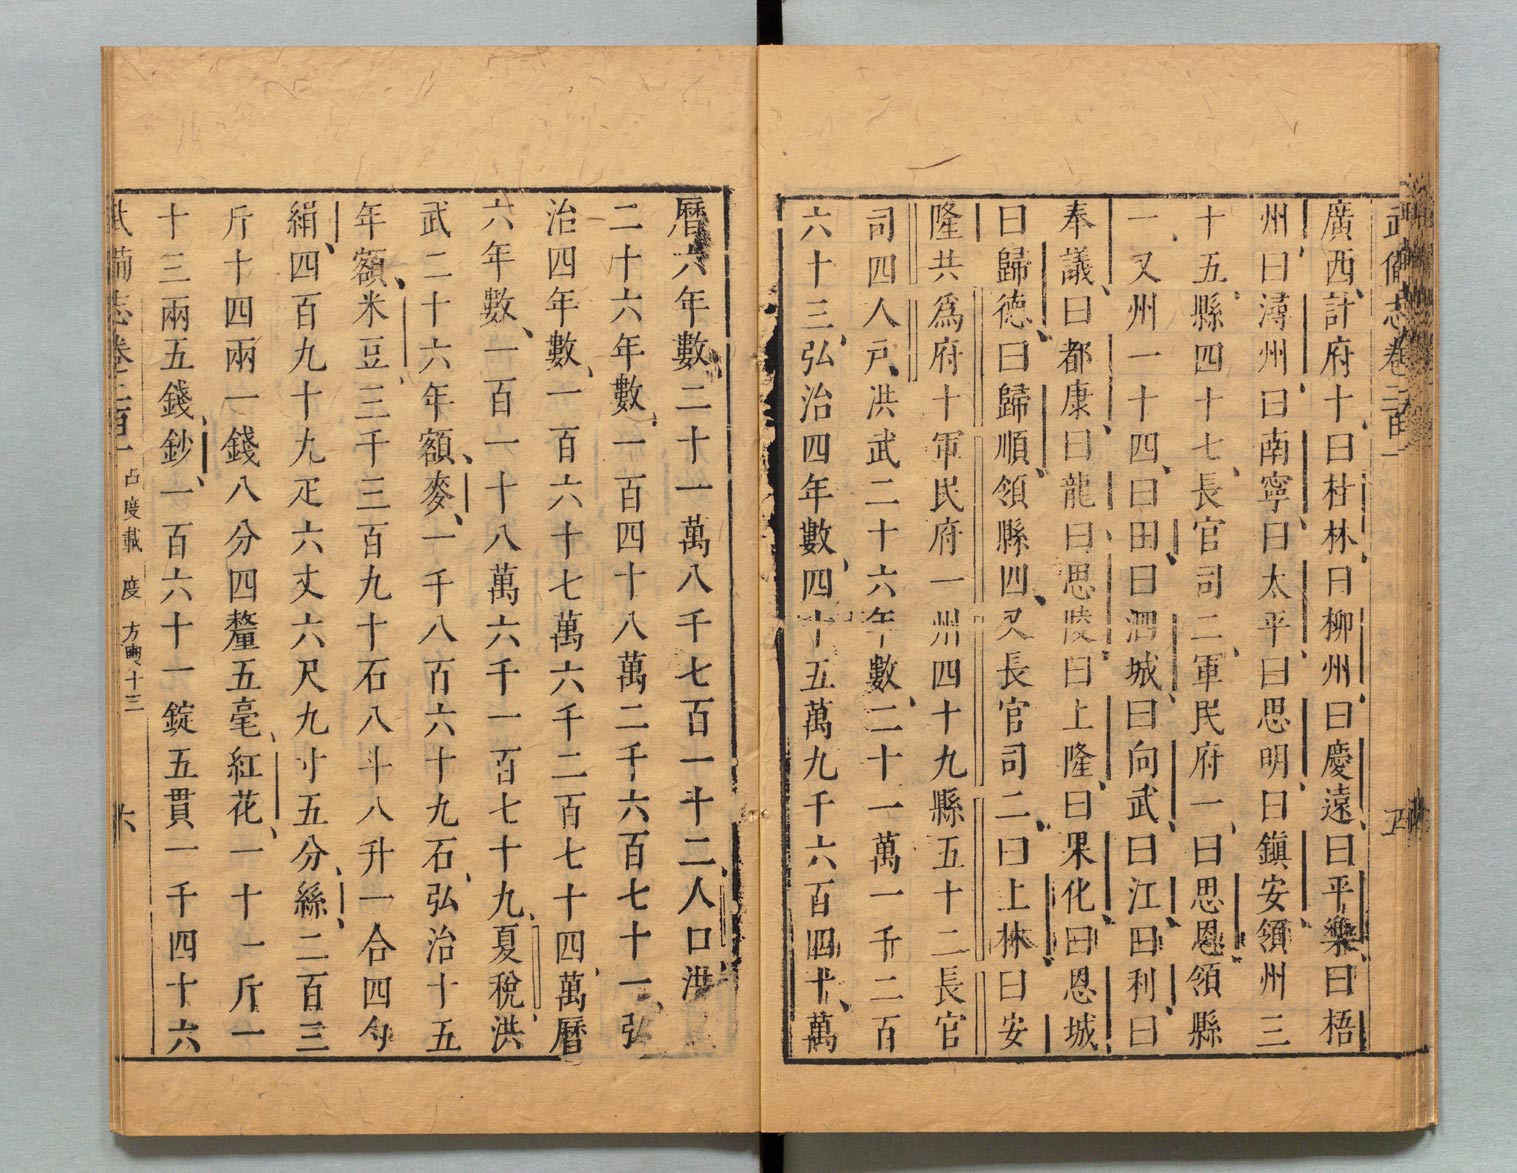 武備志卷二百一
廣西計府十曰桂林曰柳州曰慶遠曰平樂曰梧
州曰潯州曰南寧曰太平曰思明曰鎮安領州三
十五縣四十七長官司二軍民府一曰思恩領縣
一又州一十四曰田曰泗城曰向武曰江曰利曰
奉議曰都康曰龍曰思陵曰上隆曰果化曰恩城
曰歸德曰歸順領縣四又長官司二曰上林曰安
隆共爲府十軍民府一州四十九縣五十二長官
司四人戸洪武二十六年數二十一萬一千二百
六十三弘治四年數四十五萬九千六百四十萬
曆六年數二十一萬八千七百一十二人口洪
二十六年數一百四十八萬二千六百七十一弘
治四年數一百六十七萬六千二百七十四萬曆
六年數一百一十八萬六千一百七十九夏稅洪
武二十六年額麥一千八百六十九石弘治十五
年額米豆三千三百九十石八斗八升一合四勺
絹四百九十九疋六丈六尺九寸五分絲二百三
斤十四兩一錢八分四釐五毫紅花一十一斤一
十三兩五錢鈔一百六十一錠五貫一千四十六
武備志卷二百一 占度載 度 方輿十三 六